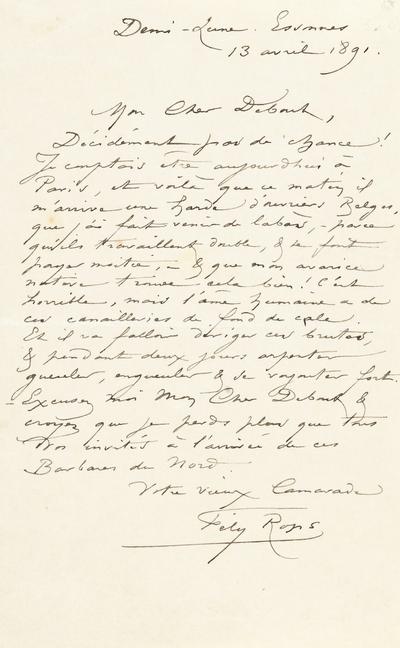 Demi-Lune. Essonnes
13 avril 1891.
Mon Cher Debout,
Décidément pas de chance!
Je comptais être aujourdhui à
Paris, et voilà que ce matin, il
m'arrive une horde d'ouvriers Belges,
que j'ai fait venir de là bas, - parce
qu'ils travaillent double, & se font
payer moitié, - & que mon avarice
native trouve cela bien! C'est
horrible, mais l'âme humaine a de
ces canailleries de fond de cale.
Et il va falloir diriger ces brutes,
& pendant deux jours
gueuler, engueuler & se fort.
- Excusez moi Mon Cher Debout &
croyez que je perds plus que tous
Vos invités à l'arrivée de ces
Barbares du Nord.
Votre vieux Camarade
Fély Rops